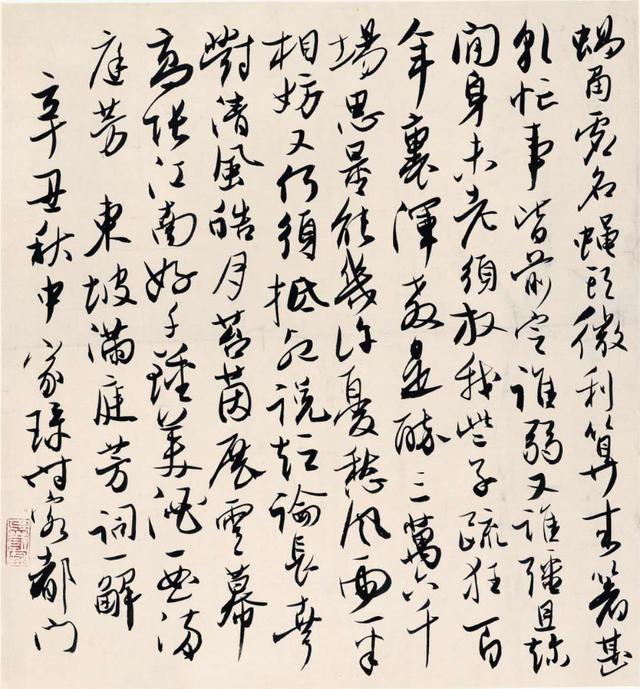 蝸角虛名蠅頭微利算來著甚
乾忙事皆前定誰弱又誰彊且趁
閒身未老須放我些子疏狂百
年裏渾教是醉三萬六千
場思量能幾許憂愁風雨一半
相妨又何須抵死說短論長幸
對清風皓月苔茵展雲幕
高張江南好千鍾美酒一曲滿
庭芳 東坡滿庭芳詞一解
辛丑秋中家時客都門